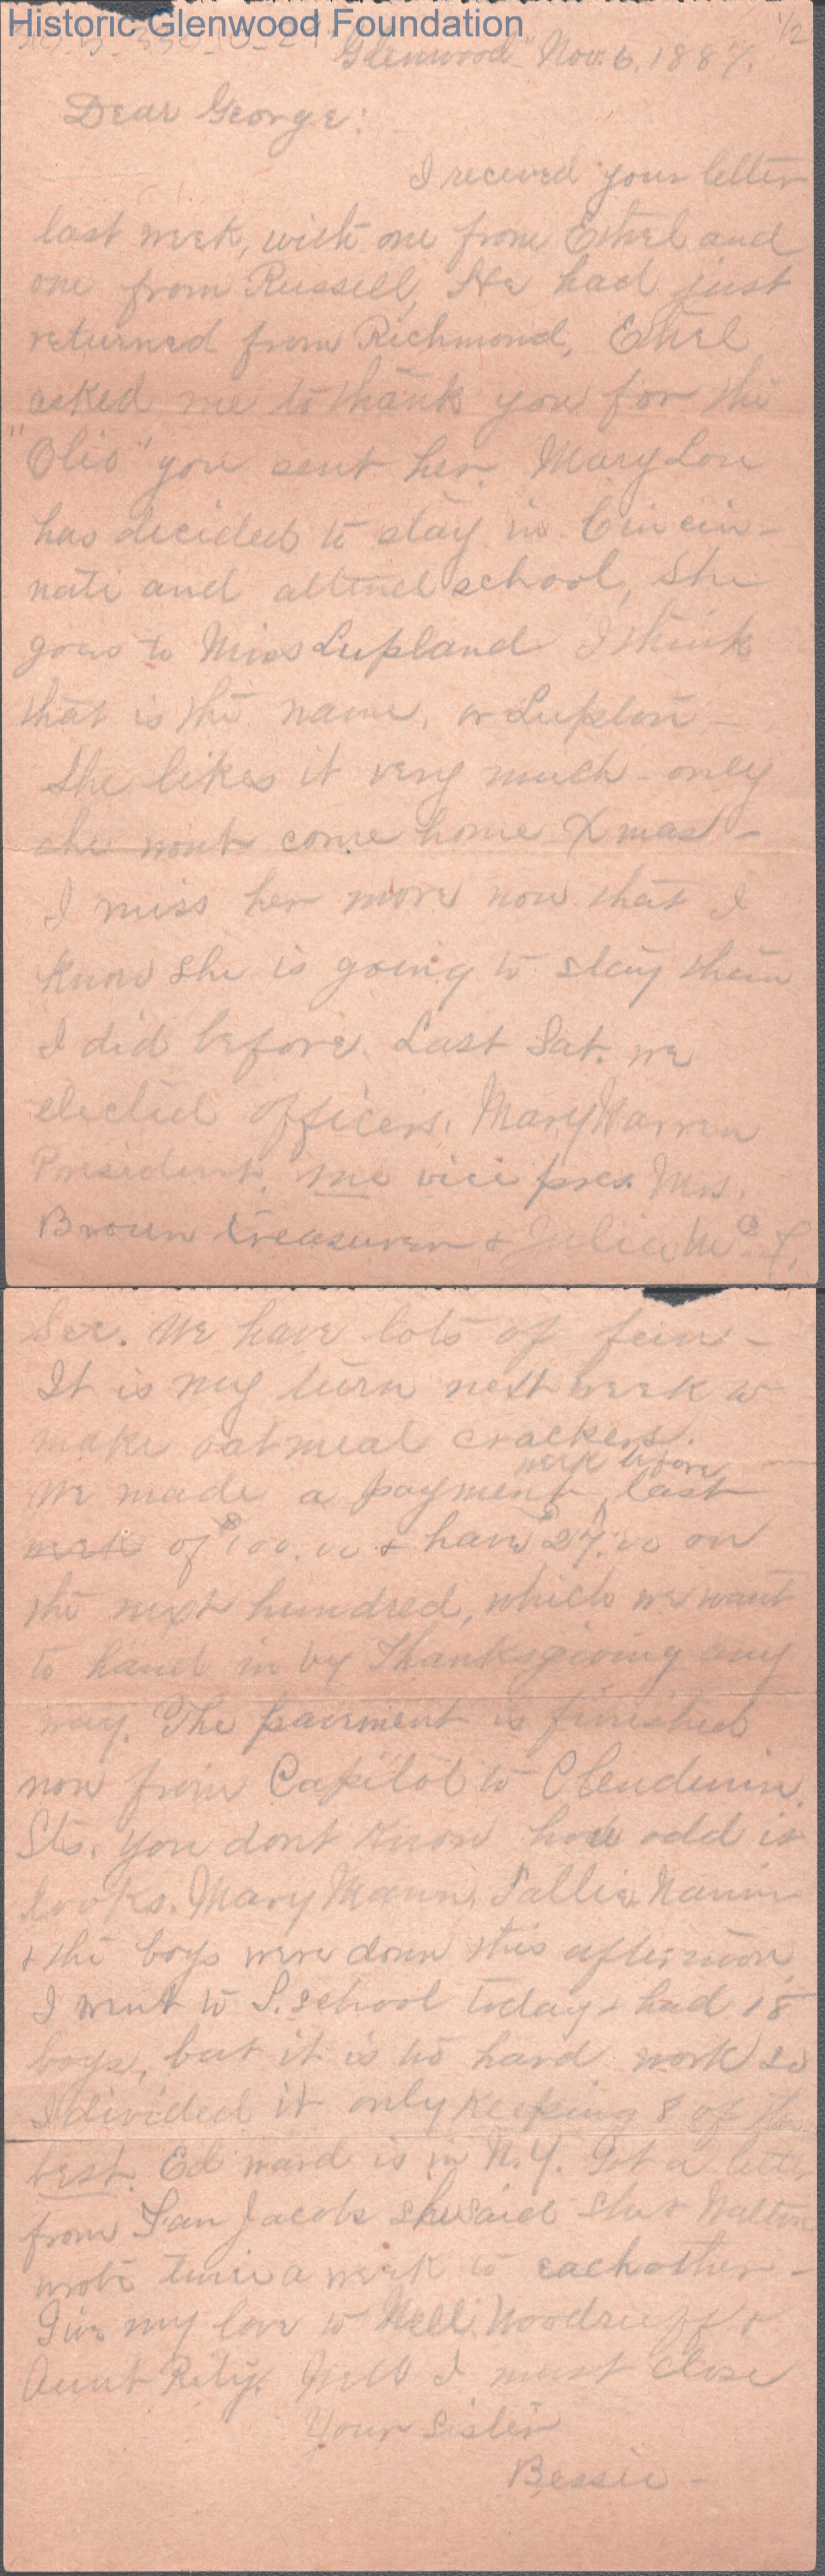 Historic Glenwood Foundation
1/2
"Glenwood" Nov. 6, 1887.
Dear George:
I received your letter
last week, with one from Ethel and
one from Russell, He had just
returned from Richmond, Ethel
asked me to thank you for the
"Olio" you sent her. Mary Lou
has decided to stay in Cincin-
nati and attend school, She
goes to Miss Lupland I think
that is the name, or Lupton -
She likes it very much - only
she wont come home Xmas -
I miss her more now that I
know she is going to stay than
I did before. Last Sat. we
elected officers. Mary Warren
President, me vice pres. Mrs.
Broun treasurer & Julia
Sec. We have lots of fun -
It is my turn next week to
make oatmeal crackers.
week before
We made a payment, last
week of $100.00 & have $27.00 on
the next hundred, which we want
to hand in by Thanksgiving any
way. The pavement is finished
now from Capitol to Clendinin.
Sts. You dont know how odd it
looks. Mary Mann, Sallie, Nannie
& the boys were down this afternoon,
I went to S. school today & had 18
boys, but it is too hard work so
I divided it only keeping 8 of the
best. Edward is in N.Y. Got a letter
from Fan Jacob she said she & Walton
wrote twice a week to eachother -
Give my love to Nell Woodruff &
Aunt Well I must close
Your sister
Bessie -